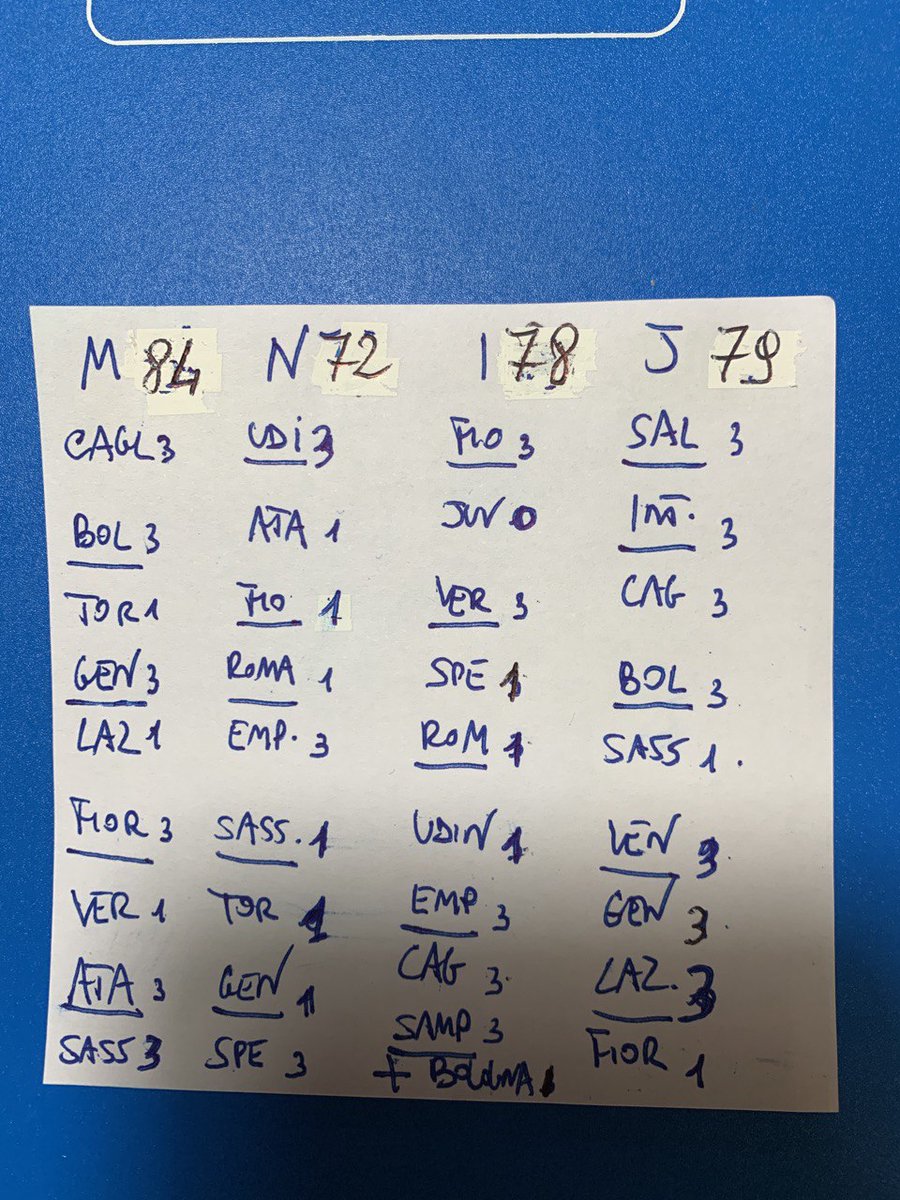 M 84 N 72 I 78 J 79
CAGL 3 UDI 3 FIO 3 SAL 3
BOL 3 ATA 1 JUV 0 INT. 3
TOR 1 FIO 1 VER 3 CAG 3
GEN 3 ROMA 1 SPE 1 BOL 3
LAZ 1 EMP. 3 ROM 1 SASS 1.
FIOR 3 SASS. 1 UDIN 1 VEN 3
VER 1 TOR 1 EMP 3 GEN 3
ATA 3 GEN 1 CAG 3 LAZ. 3
SASS 3 SPE 3 SAMP 3 FIOR 1
+ BOLOGNA 1